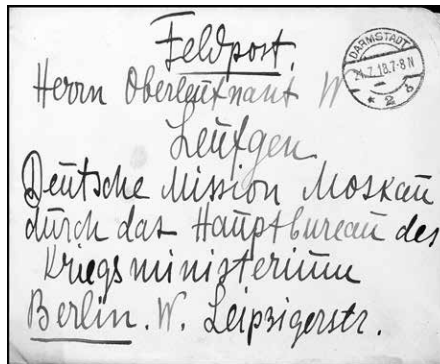 Feldpost.
DARMSTADT
24.7.18.7-8N
* 2 b
Herrn Oberleutnant W
Leutgen
Deutsche Mission Moskau
durch das Hauptbureau des
Kriegsministerium
Berlin. W. Leipzigerstr.